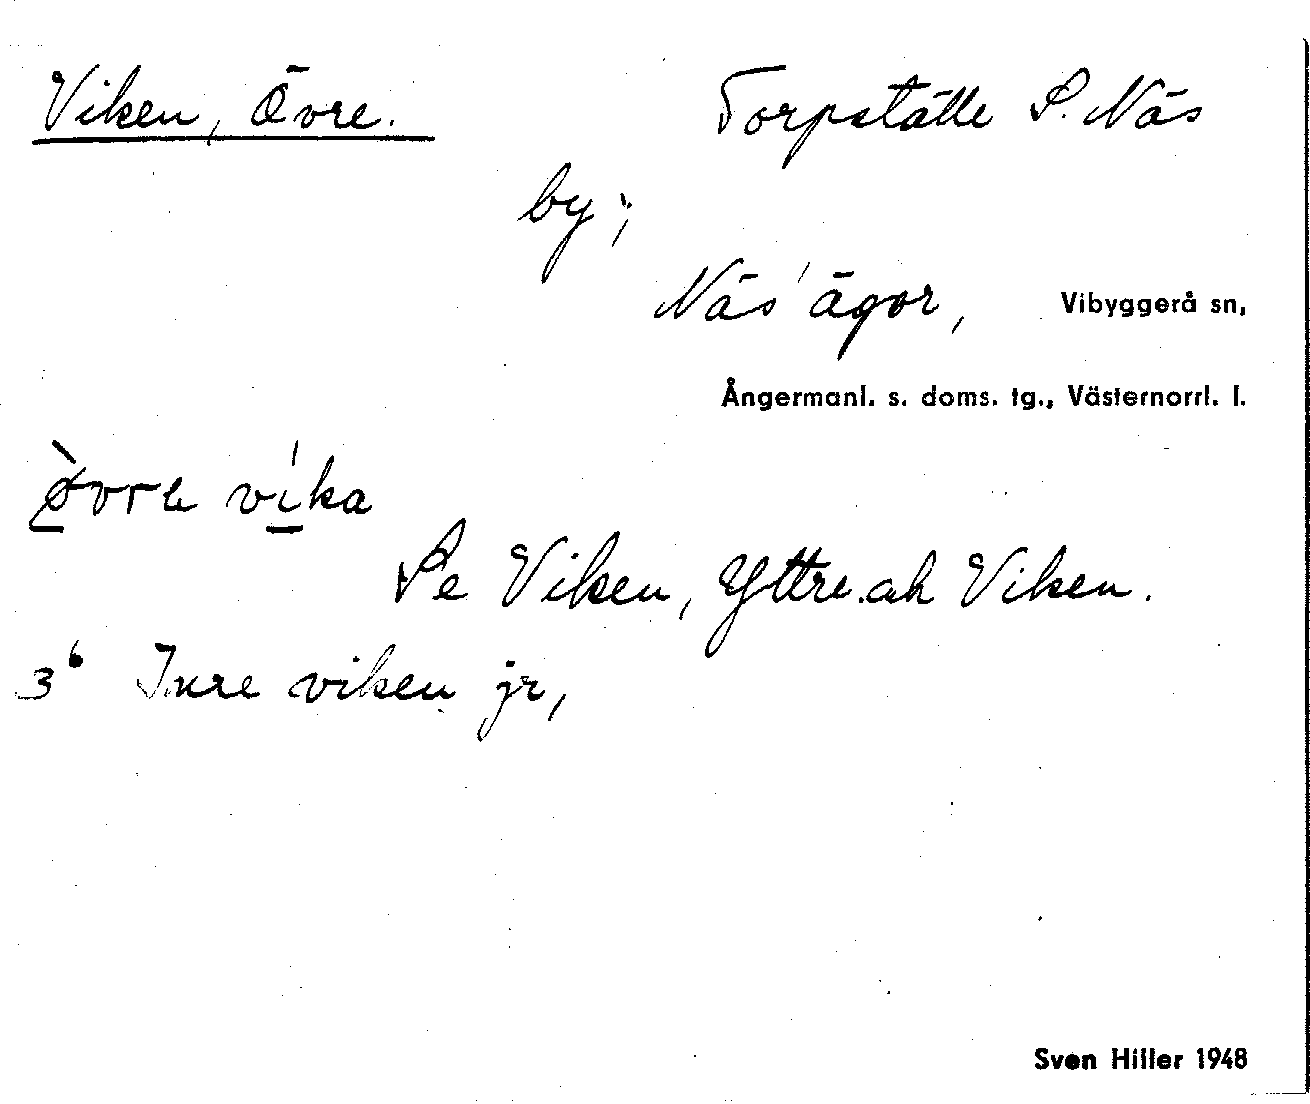 Viken, Övre. Torpställe S. Näs
by;
Näs ägor, Vibyggerå sn,
Ångermanl. s. doms. tg., Västernorrl. l.
vika
Se Viken, Yttre. ak Viken.
3⁶ Inre viken jr,
Sven Hiller 1948